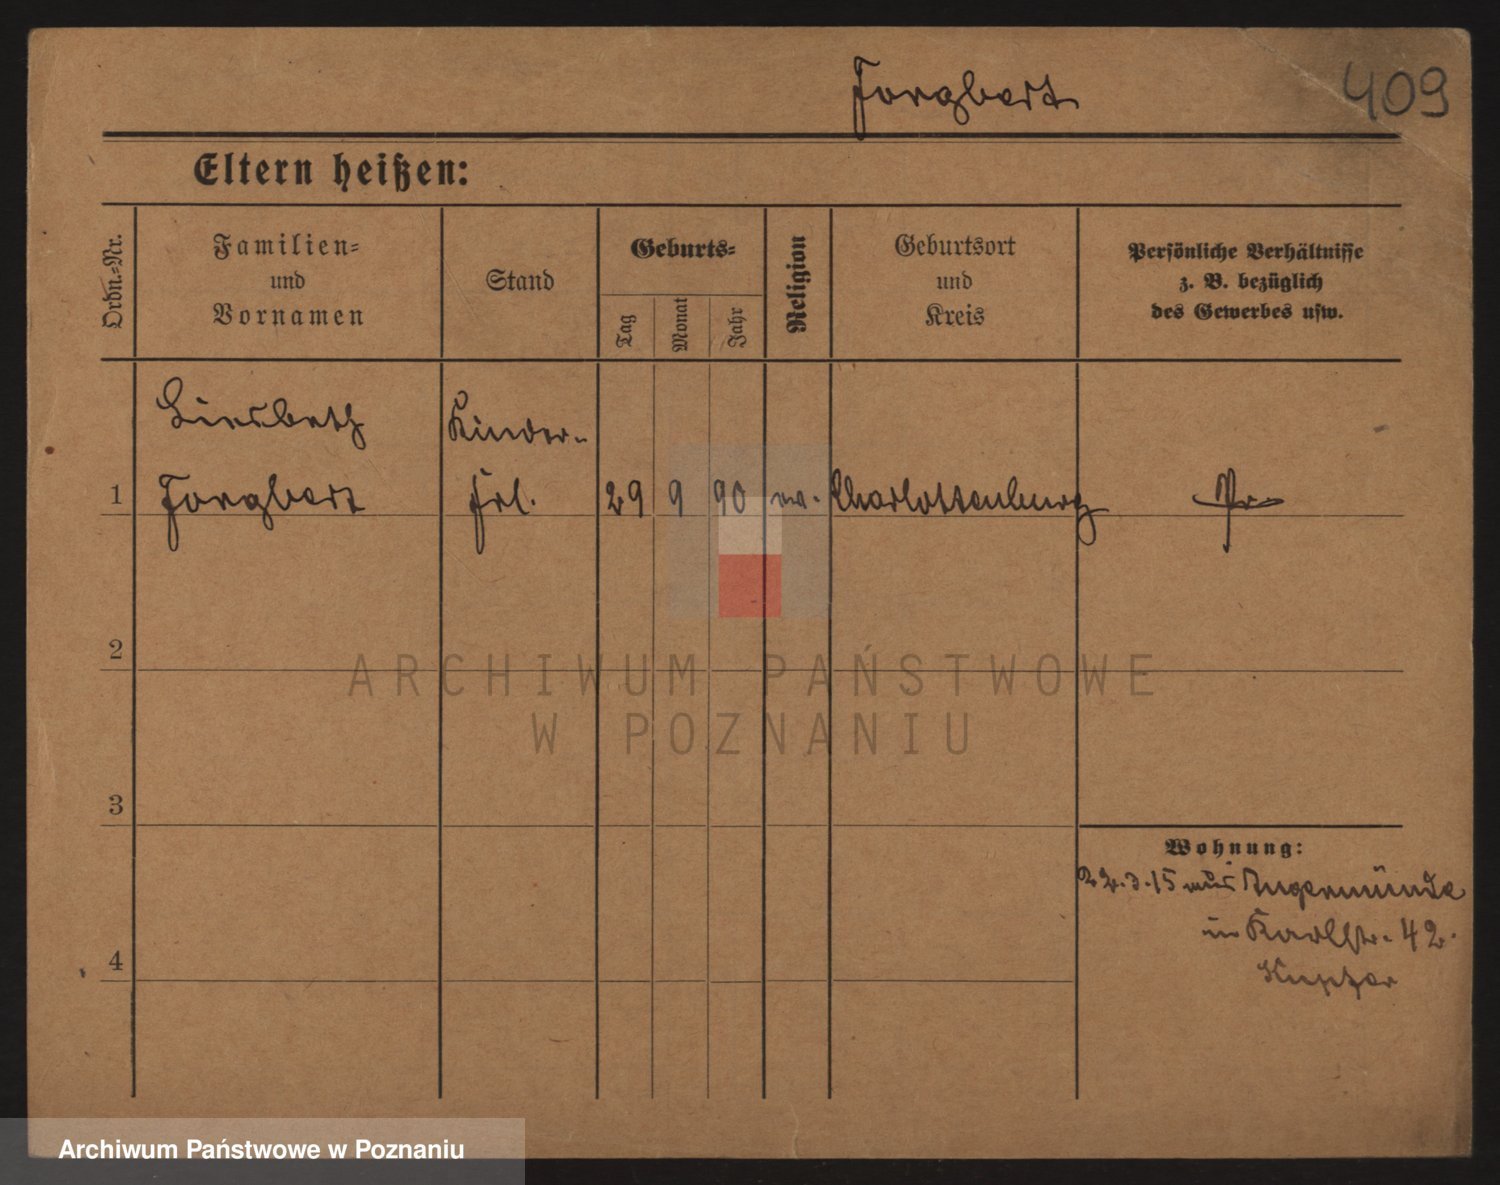 Jorgbert
409
Eltern heißen:
Ordn.-Nr.
Familien-
und
Vornamen
Stand
Geburts-
Tag
Monat
Jahr
Religion
Geburtsort
und
Kreis
Persönliche Verhältnisse
z. B. bezüglich
des Gewerbes usw.
Liesbeth
Kinder-
1
Jorgbert
Frl.
29
9
90
ev.
Charlottenburg
Pr.
2
3
4
Wohnung:
22.3.15 aus Angermünde
in Karlstr. 42.
ARCHIWUM PAŃSTWOWE
W POZNANIU
Archiwum Państwowe w Poznaniu